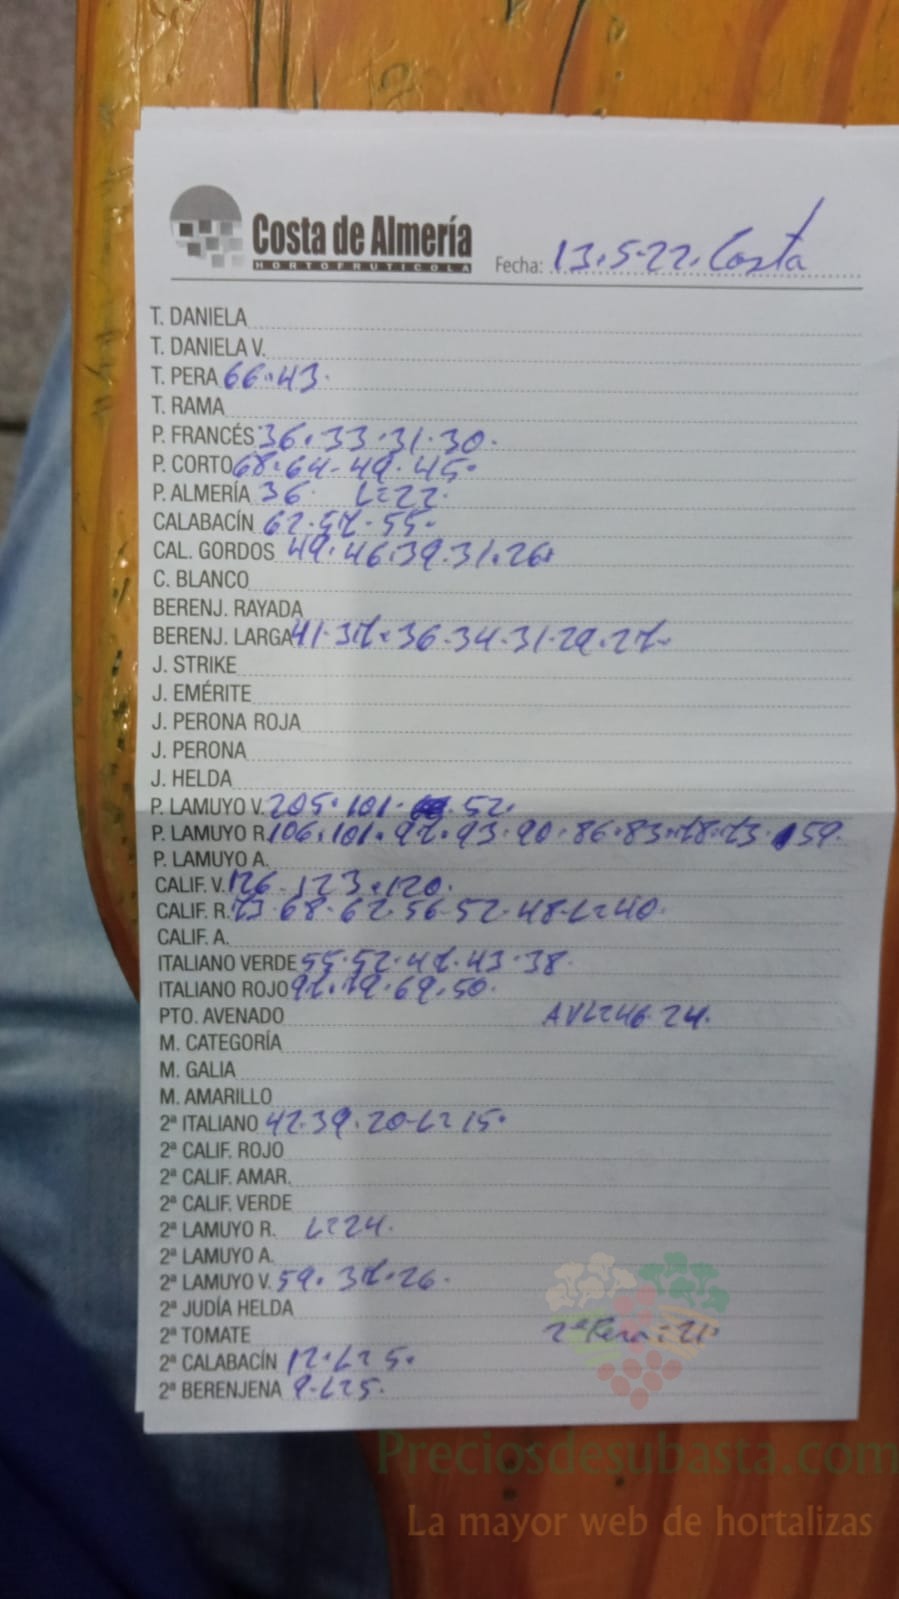 Costa de Almería
HORTOFRUTICOLA
Fecha: 13.5-22. Costa
T. DANIELA
T. DANIELA V.
T. PERA 66.43.
T. RAMA
P. FRANCÉS 36.33.31.30.
P. CORTO 68.64-49.45.
P. ALMERÍA 36. L=22.
CALABACÍN 62.57.55.
CAL. GORDOS 49.46.39.31.26.
C. BLANCO
BERENJ. RAYADA
BERENJ. LARGA 41.37.36.34.31.29.27.
J. STRIKE
J. EMÉRITE
J. PERONA ROJA
J. PERONA
J. HELDA
P. LAMUYO V. 205.101. .52.
P. LAMUYO R. 106.101.97.93.90.86.83.78.73. 59.
P. LAMUYO A.
CALIF. V. 126-123.120.
CALIF. R. 73.68.62.56-52.48-L=40.
CALIF. A.
ITALIANO VERDE 55.52.47.43.38.
ITALIANO ROJO 97.79.69.50.
PTO. AVENADO AVL=46.24.
M. CATEGORÍA
M. GALIA
M. AMARILLO
2ª ITALIANO 42.39.20-L=15.
2ª CALIF. ROJO
2ª CALIF. AMAR.
2ª CALIF. VERDE
2ª LAMUYO R. L=24.
2ª LAMUYO A.
2ª LAMUYO V. 59.37.26.
2ª JUDÍA HELDA
2ª TOMATE 2ª Pera=21.
2ª CALABACÍN 12.L=5.
2ª BERENJENA 9-L=5.
Preciosdesubasta.com
La mayor web de hortalizas